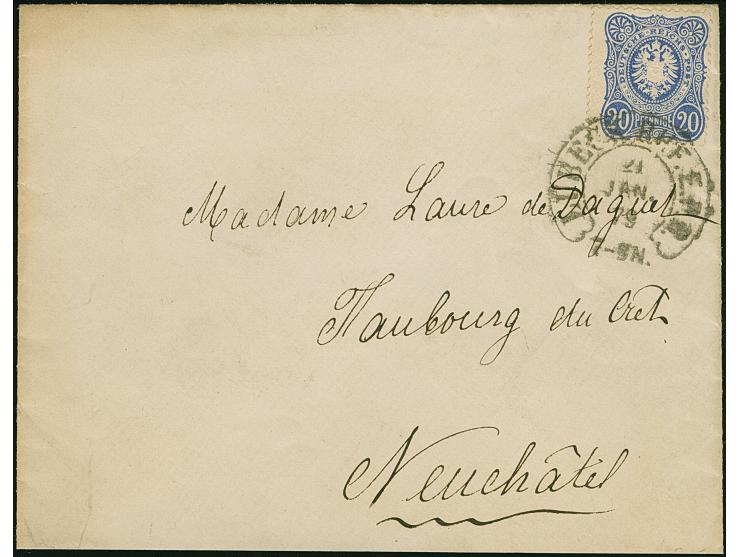 DEUTSCHE REICHS-POST
20 PFENNIGE 20
21
JAN
Madame Laure de Daguet
Faubourg du Crêt
Neuchâtel